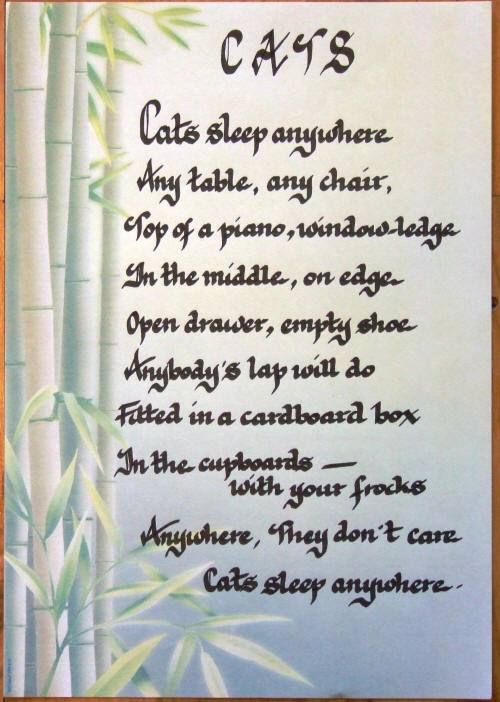 CATS
Cats sleep anywhere
Any table, any chair,
Top of a piano, window-ledge
In the middle, on edge
Open drawer, empty shoe
Anybody's lap will do
Fitted in a cardboard box
In the cupboards —
with your frocks
Anywhere, They don't care
Cats sleep anywhere.